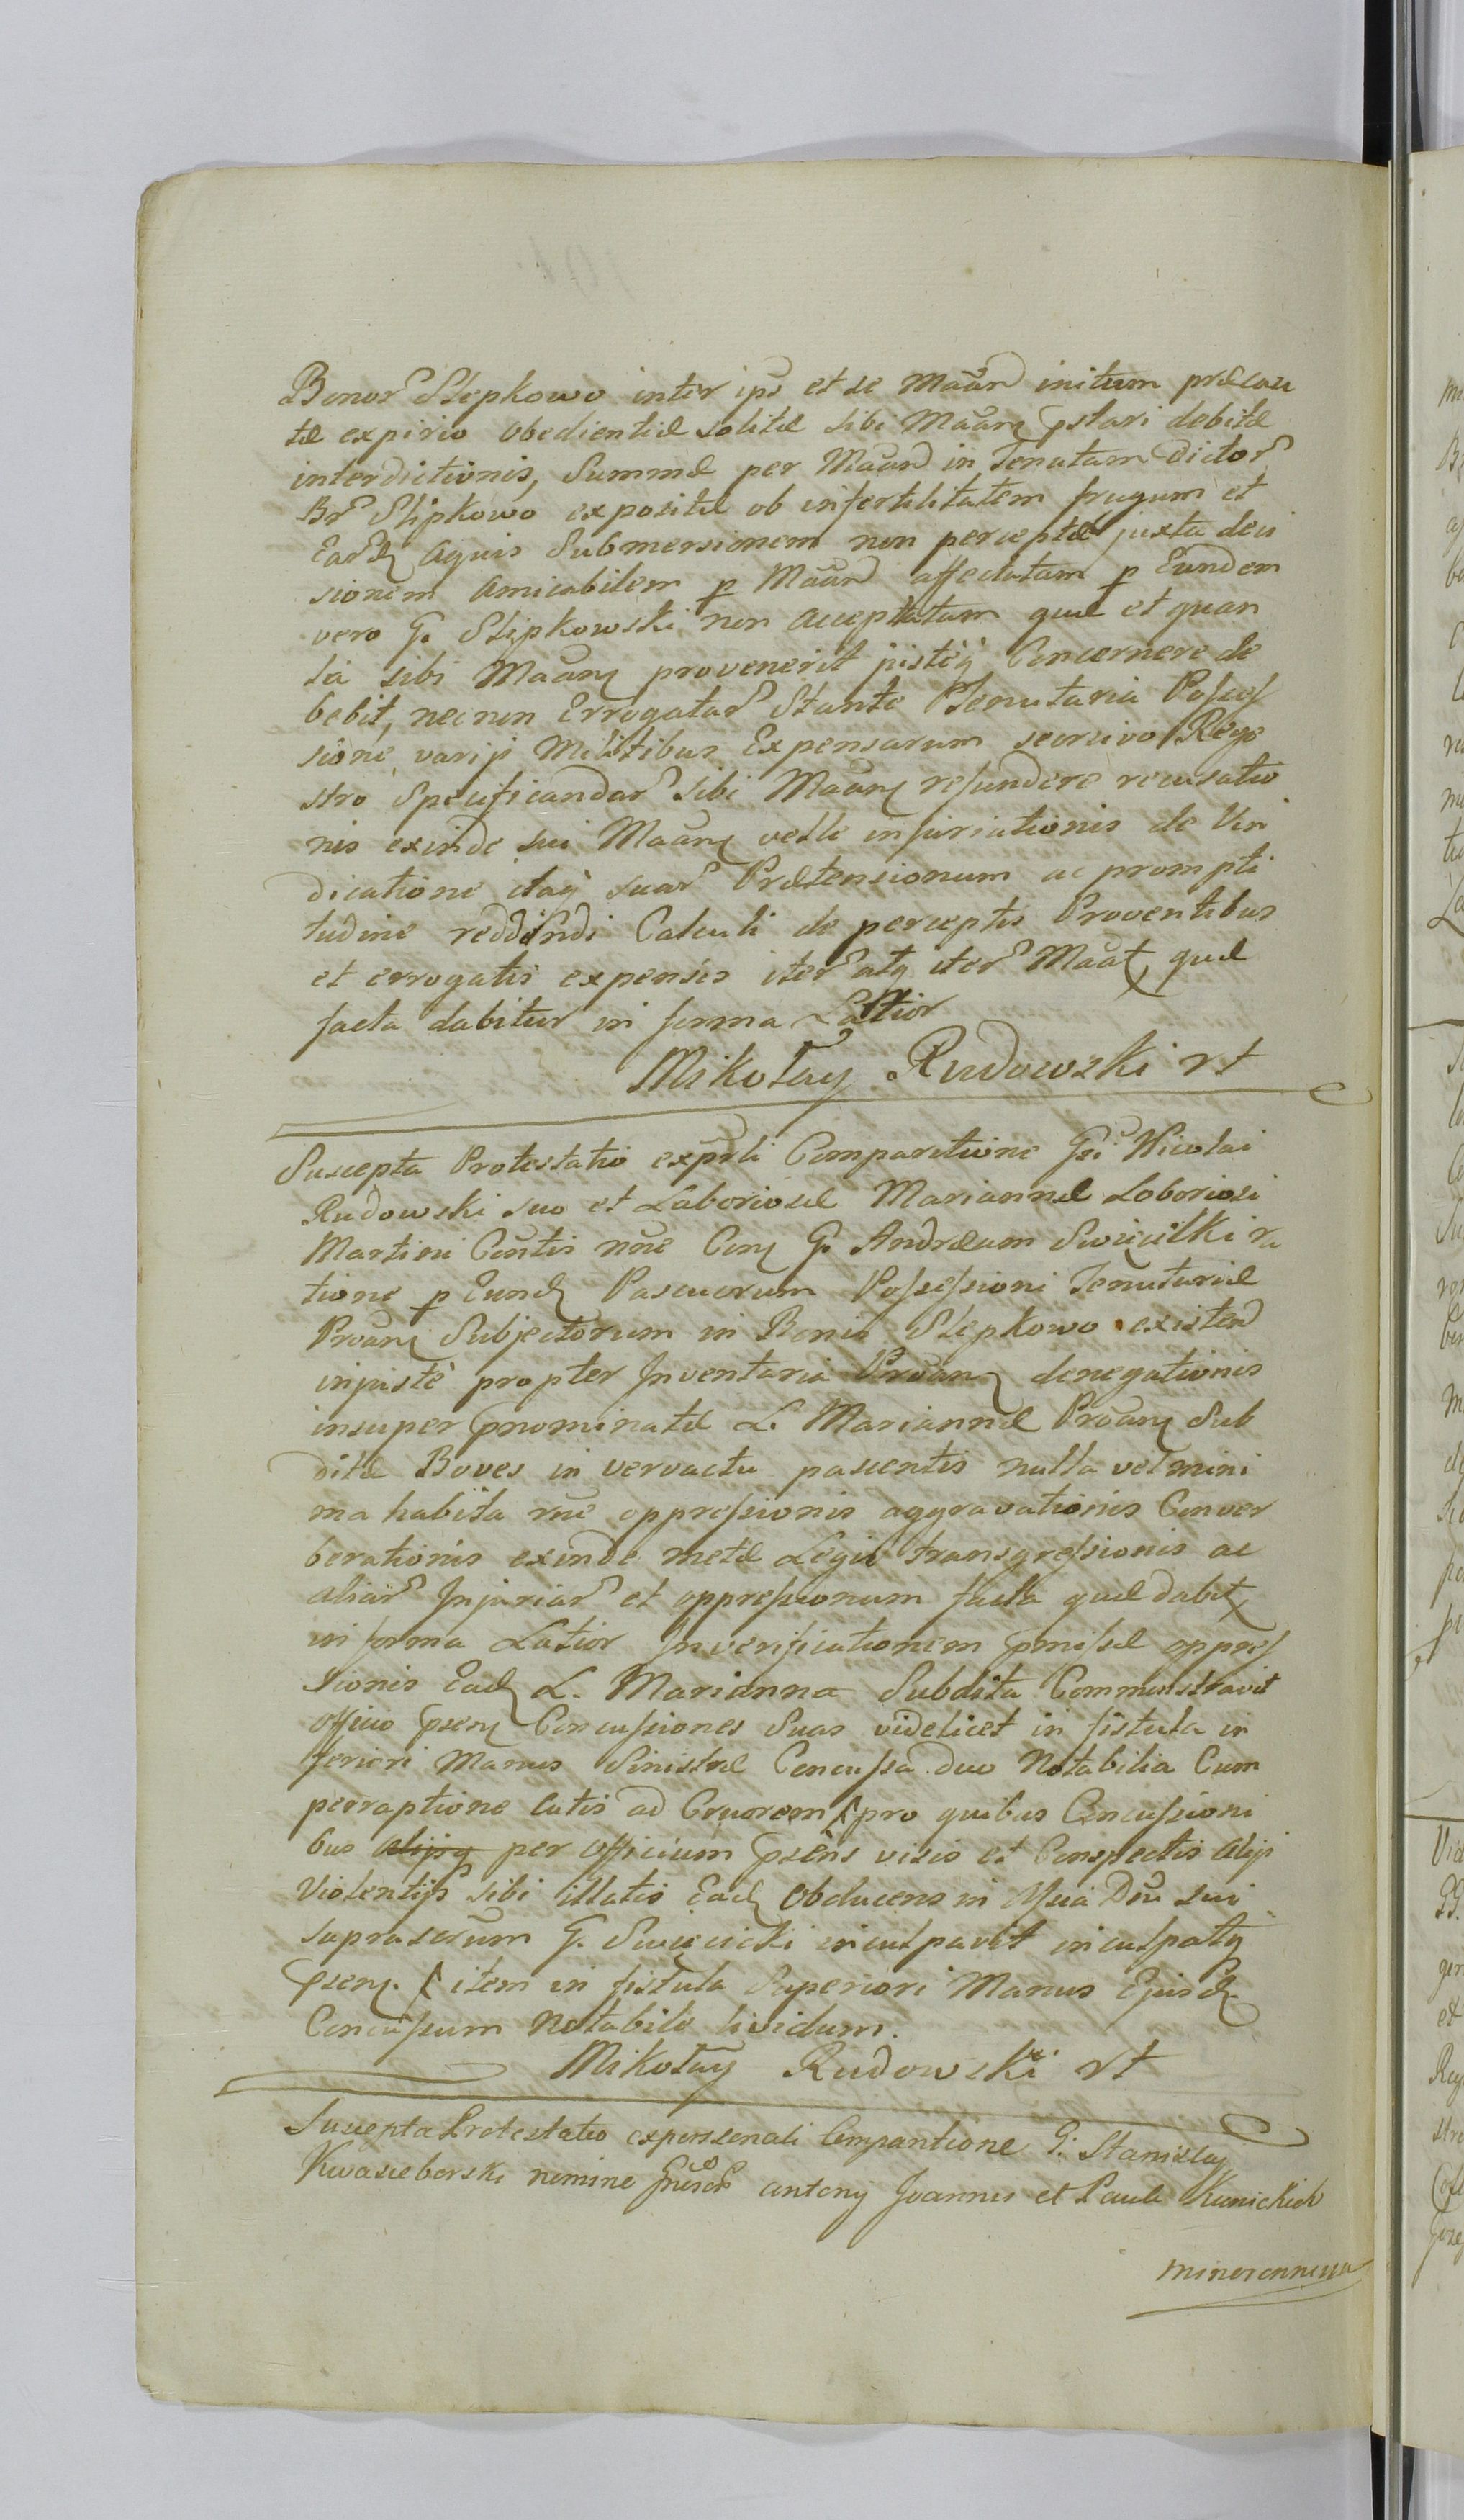 Bonor Slepkowo inter ips et se Maan initum præcau
tæ expirio obedientiæ solitæ sibi Maanj pstari debitæ
interdictionis, Summæ per Maan in Tenutam dictor
Br Slipkowo expositæ ob infertilitatem frugum et
Eard aquis Submersionem non perceptæ juxta deci
sionem amicabilem p Maan affectatam p Eundem
vero G. Slepkowski non acceptatam quæ et quan
ta sibi Maanj provenerit justeq Concernere de
bebit, nec non Errogatar Stante Tenutaria Posses
sione varijs Militibus Expensarum seorsivo Rege
stro Specificandar sibi Maanj refundere recusatio
nis exinde sui Maanj velle injuriationis de Vin
dicatione itaq suar Prætensionum ac prompti
tudine reddendi Calculi de perceptis Proventibus
et errogatis expensis iter atq iter Maat, quæ
facta dabitur in forma Latior
Mikołay Rudowski rt
Suscepta Protestatio expnli Comparitione Gsi Nicolai
Rudowski suo et Laboriosæ Mariannæ Laboriosi
Martini Contis nne Conj G. Andræam Swięcicki ra
tione p Eund Pascuorum Possessioni Tenutariæ
Proanj Subjectorum in Bonis Slepkowo existen
injuste propter Inventaria Proanj denegationis
insuper pnominatæ L. Mariannæ Proanj Sub
ditæ Boves in vervactu pascentis nulla vel mini
ma habita rne oppressionis aggravationis Conver
berationis exinde metæ Legis transgressionis ac
aliar Injuriar et oppressionum facta quæ dabit
in forma Latior In verificationem pmissæ oppres
sionis Ead L. Marianna Subdita Commonstravit
officio psenj Concussiones Suas videlicet in fistula in
feriori Manus Sinistræ Concussa duo Notabilia Cum
perraptione Cutis ad Cruorem pro quibus Concussioni
bus alijsq per officium psens visis et Conspectis alijs
Violentijs sibi illatis Ead Obducens in Dni sui
suprascrum G. Swięcicki inculpavit inculpatq
psenj. item in fistula Superiori Manus Ejusd
Concussum Notabile lividum.
Mikołay Rudowski rt
Suscepta Protestatio expersonali Comparitione G. Stanislaj
Kwasieborski nomine antonij Joannis et Pauli Kunickich
minorennium